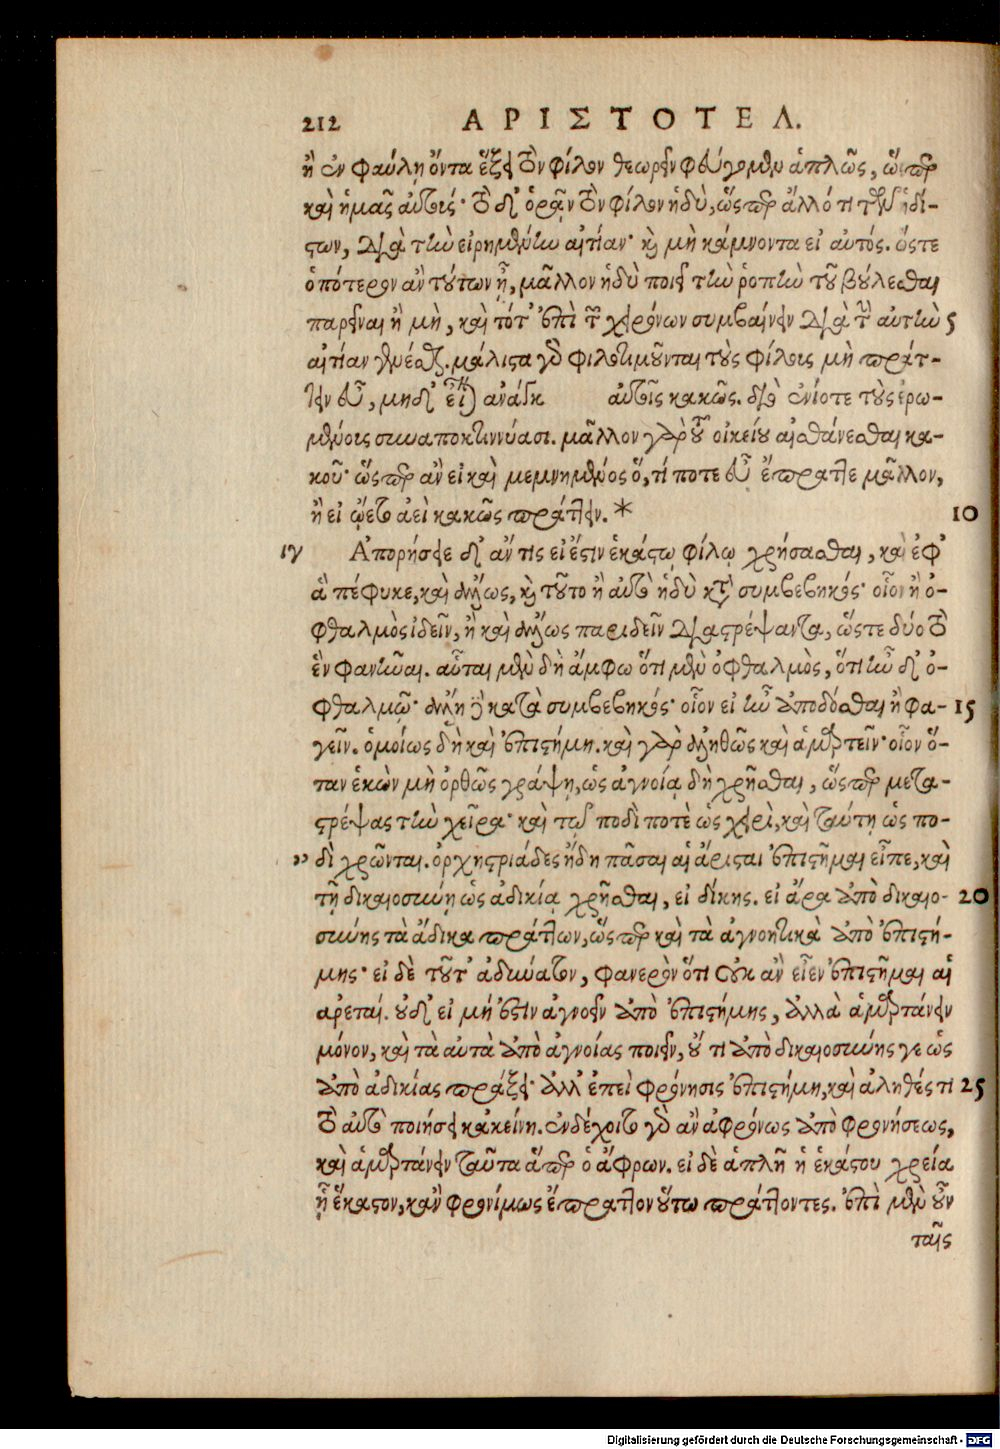 212 ΑΡΙΣΤΟΤΕΛ.
ἢ ἐν φαύλῃ ὄντα ἕξει τὸν φίλον θεωρεῖν φεύγομεν ἁπλῶς, ὥσπερ
καὶ ἡμᾶς αὐτούς· τὸ δ' ὁρᾶν τὸν φίλον ἡδὺ, ὥσπερ ἄλλό τι τῶν ἡδί-
στων, διὰ τὴν εἰρημένην αἰτίαν· καὶ μὴ κάμνοντα εἰ αὐτός. ὥστε
ὁπότερον ἂν τούτων ᾖ, μᾶλλον ἡδὺ ποιεῖ τὴν ῥοπὴν τοῦ βούλεσθαι
παρεῖναι ἢ μὴ, καὶ τότ' ἐπὶ τῶν χειρόνων συμβαίνειν διὰ τὴν αὐτὴν 5
αἰτίαν γενέσθαι. μάλιστα γὰρ φιλοτιμοῦνται τοὺς φίλους μὴ πράτ-
τειν εὖ, μηδ' εἶναι ἀνάγκ αὐτοῖς κακῶς. διὸ ἐνίοτε τοὺς ἐρω-
μένους συναποκτιννύασι. μᾶλλον γὰρ τοῦ οἰκείου αἰσθάνεσθαι κα-
κοῦ· ὥσπερ ἂν εἰ καὶ μεμνημένος ὅ, τί ποτε εὖ ἔπραττε μᾶλλον,
ἢ εἰ ᾤετο ἀεὶ κακῶς πράττειν. * 10
ιγ Ἀπορήσειε δ' ἄν τις εἰ ἔστιν ἑκάστῳ φίλῳ χρήσασθαι, καὶ ἐφ'
ἃ πέφυκε, καὶ ἄλλως, καὶ τοῦτο ἢ αὐτὸ ἡδὺ κατὰ συμβεβηκός· οἷον ἢ ὀ-
φθαλμὸς ἰδεῖν, ἢ καὶ ἄλλως παριδεῖν διαστρέψαντα, ὥστε δύο τὸ
ἓν φανῆναι. αὗται μὲν δὴ ἄμφω ὅτι μὲν ὀφθαλμὸς, ὅτι ἦν δ' ὀ-
φθαλμῷ· ἄλλη δὲ κατὰ συμβεβηκός· οἷον εἰ ἦν ἀποδόσθαι ἢ φα- 15
γεῖν. ὁμοίως δὴ καὶ ἐπιστήμη. καὶ γὰρ ἀληθῶς καὶ ἁμαρτεῖν· οἷον ὅ-
ταν ἑκὼν μὴ ὀρθῶς γράψῃ, ὡς ἀγνοίᾳ δὴ χρῆσθαι, ὥσπερ μετα-
στρέψας τὴν χεῖρα· καὶ τῷ ποδὶ ποτὲ ὡς χειρὶ, καὶ ταύτῃ ὡς πο-
δὶ χρῶνται. ὀρχηστριάδες ἤδη πᾶσαι αἱ ἄρισται ἐπιστῆμαι εἶπε, καὶ
τῇ δικαιοσύνῃ ὡς ἀδικίᾳ χρῆσθαι, εἰ δίκης. εἰ ἄρα ἀπὸ δικαιο- 20
σύνης τὰ ἄδικα πράττων, ὥσπερ καὶ τὰ ἀγνοητικὰ ἀπὸ ἐπιστή-
μης· εἰ δὲ τοῦτ' ἀδύνατον, φανερὸν ὅτι οὐκ ἂν εἶεν ἐπιστῆμαι αἱ
ἀρεταί. οὐδ' εἰ μή ἐστιν ἀγνοεῖν ἀπὸ ἐπιστήμης, ἀλλὰ ἁμαρτάνειν
μόνον, καὶ τὰ αὐτὰ ἀπὸ ἀγνοίας ποιεῖν, οὔ τι ἀπὸ δικαιοσύνης γε ὡς
ἀπὸ ἀδικίας πράξει· ἀλλ' ἐπεὶ φρόνησις ἐπιστήμη, καὶ ἀληθές τι 25
τὸ αὐτὸ ποιήσει κἀκείνη. ἐνδέχοιτο γὰρ ἂν ἀφρόνως ἀπὸ φρονήσεως,
καὶ ἁμαρτάνειν ταῦτα ἅπερ ὁ ἄφρων. εἰ δὲ ἁπλῆ ἡ ἑκάστου χρεία
ᾗ ἕκαστον, κἂν φρονίμως ἔπραττον οὕτω πράττοντες. ἐπὶ μὲν οὖν
ταῖς
Digitalisierung gefördert durch die Deutsche Forschungsgemeinschaft - DFG